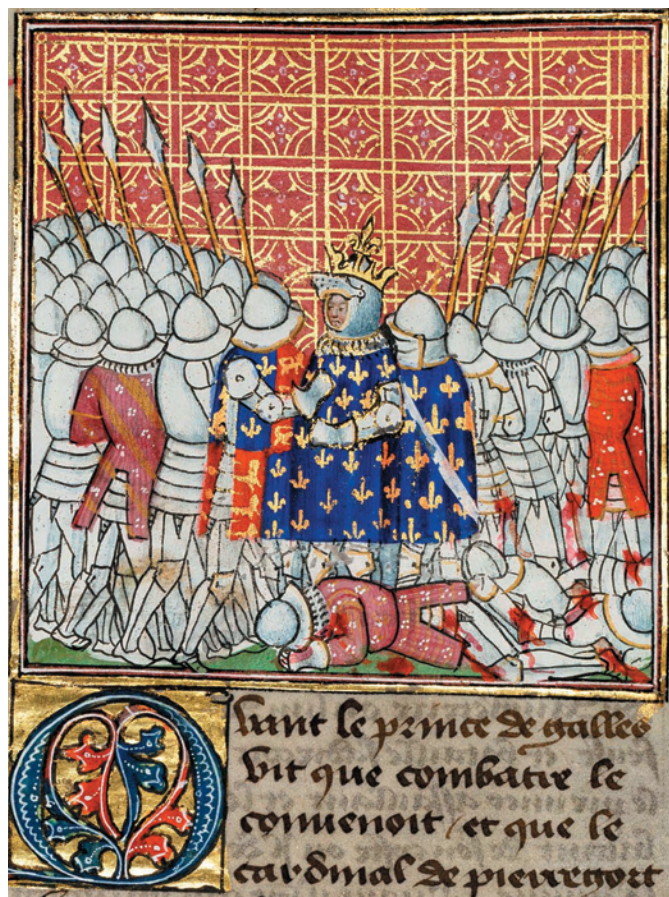 Quant le prince de galles
vit que combatre le
convenoit et que le
cardinal de pierregort